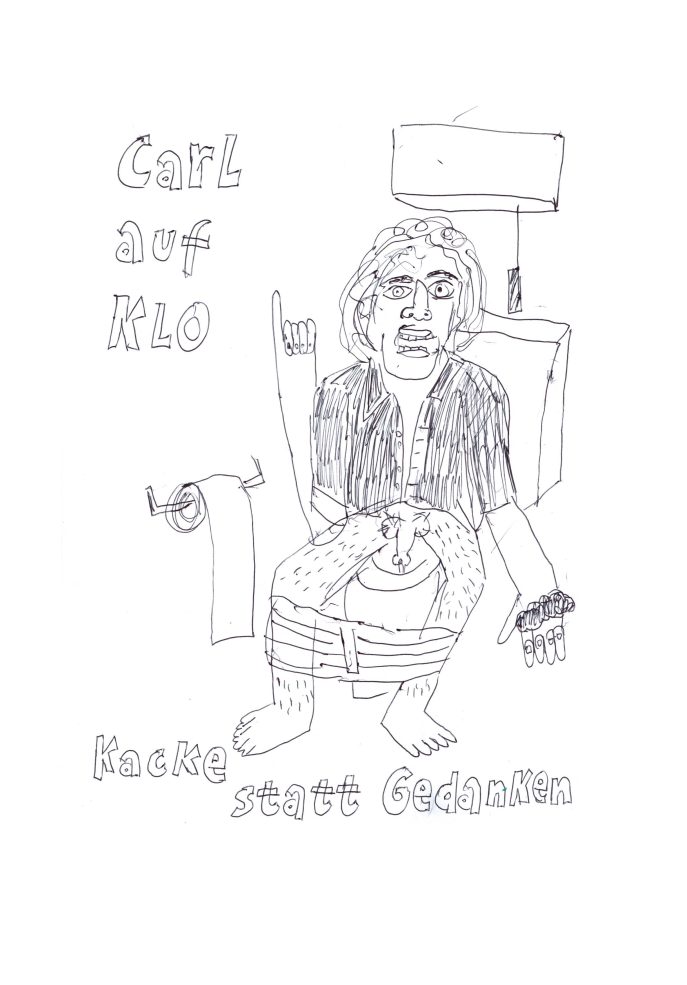 Carl
auf
KLO
Kacke
statt Gedanken